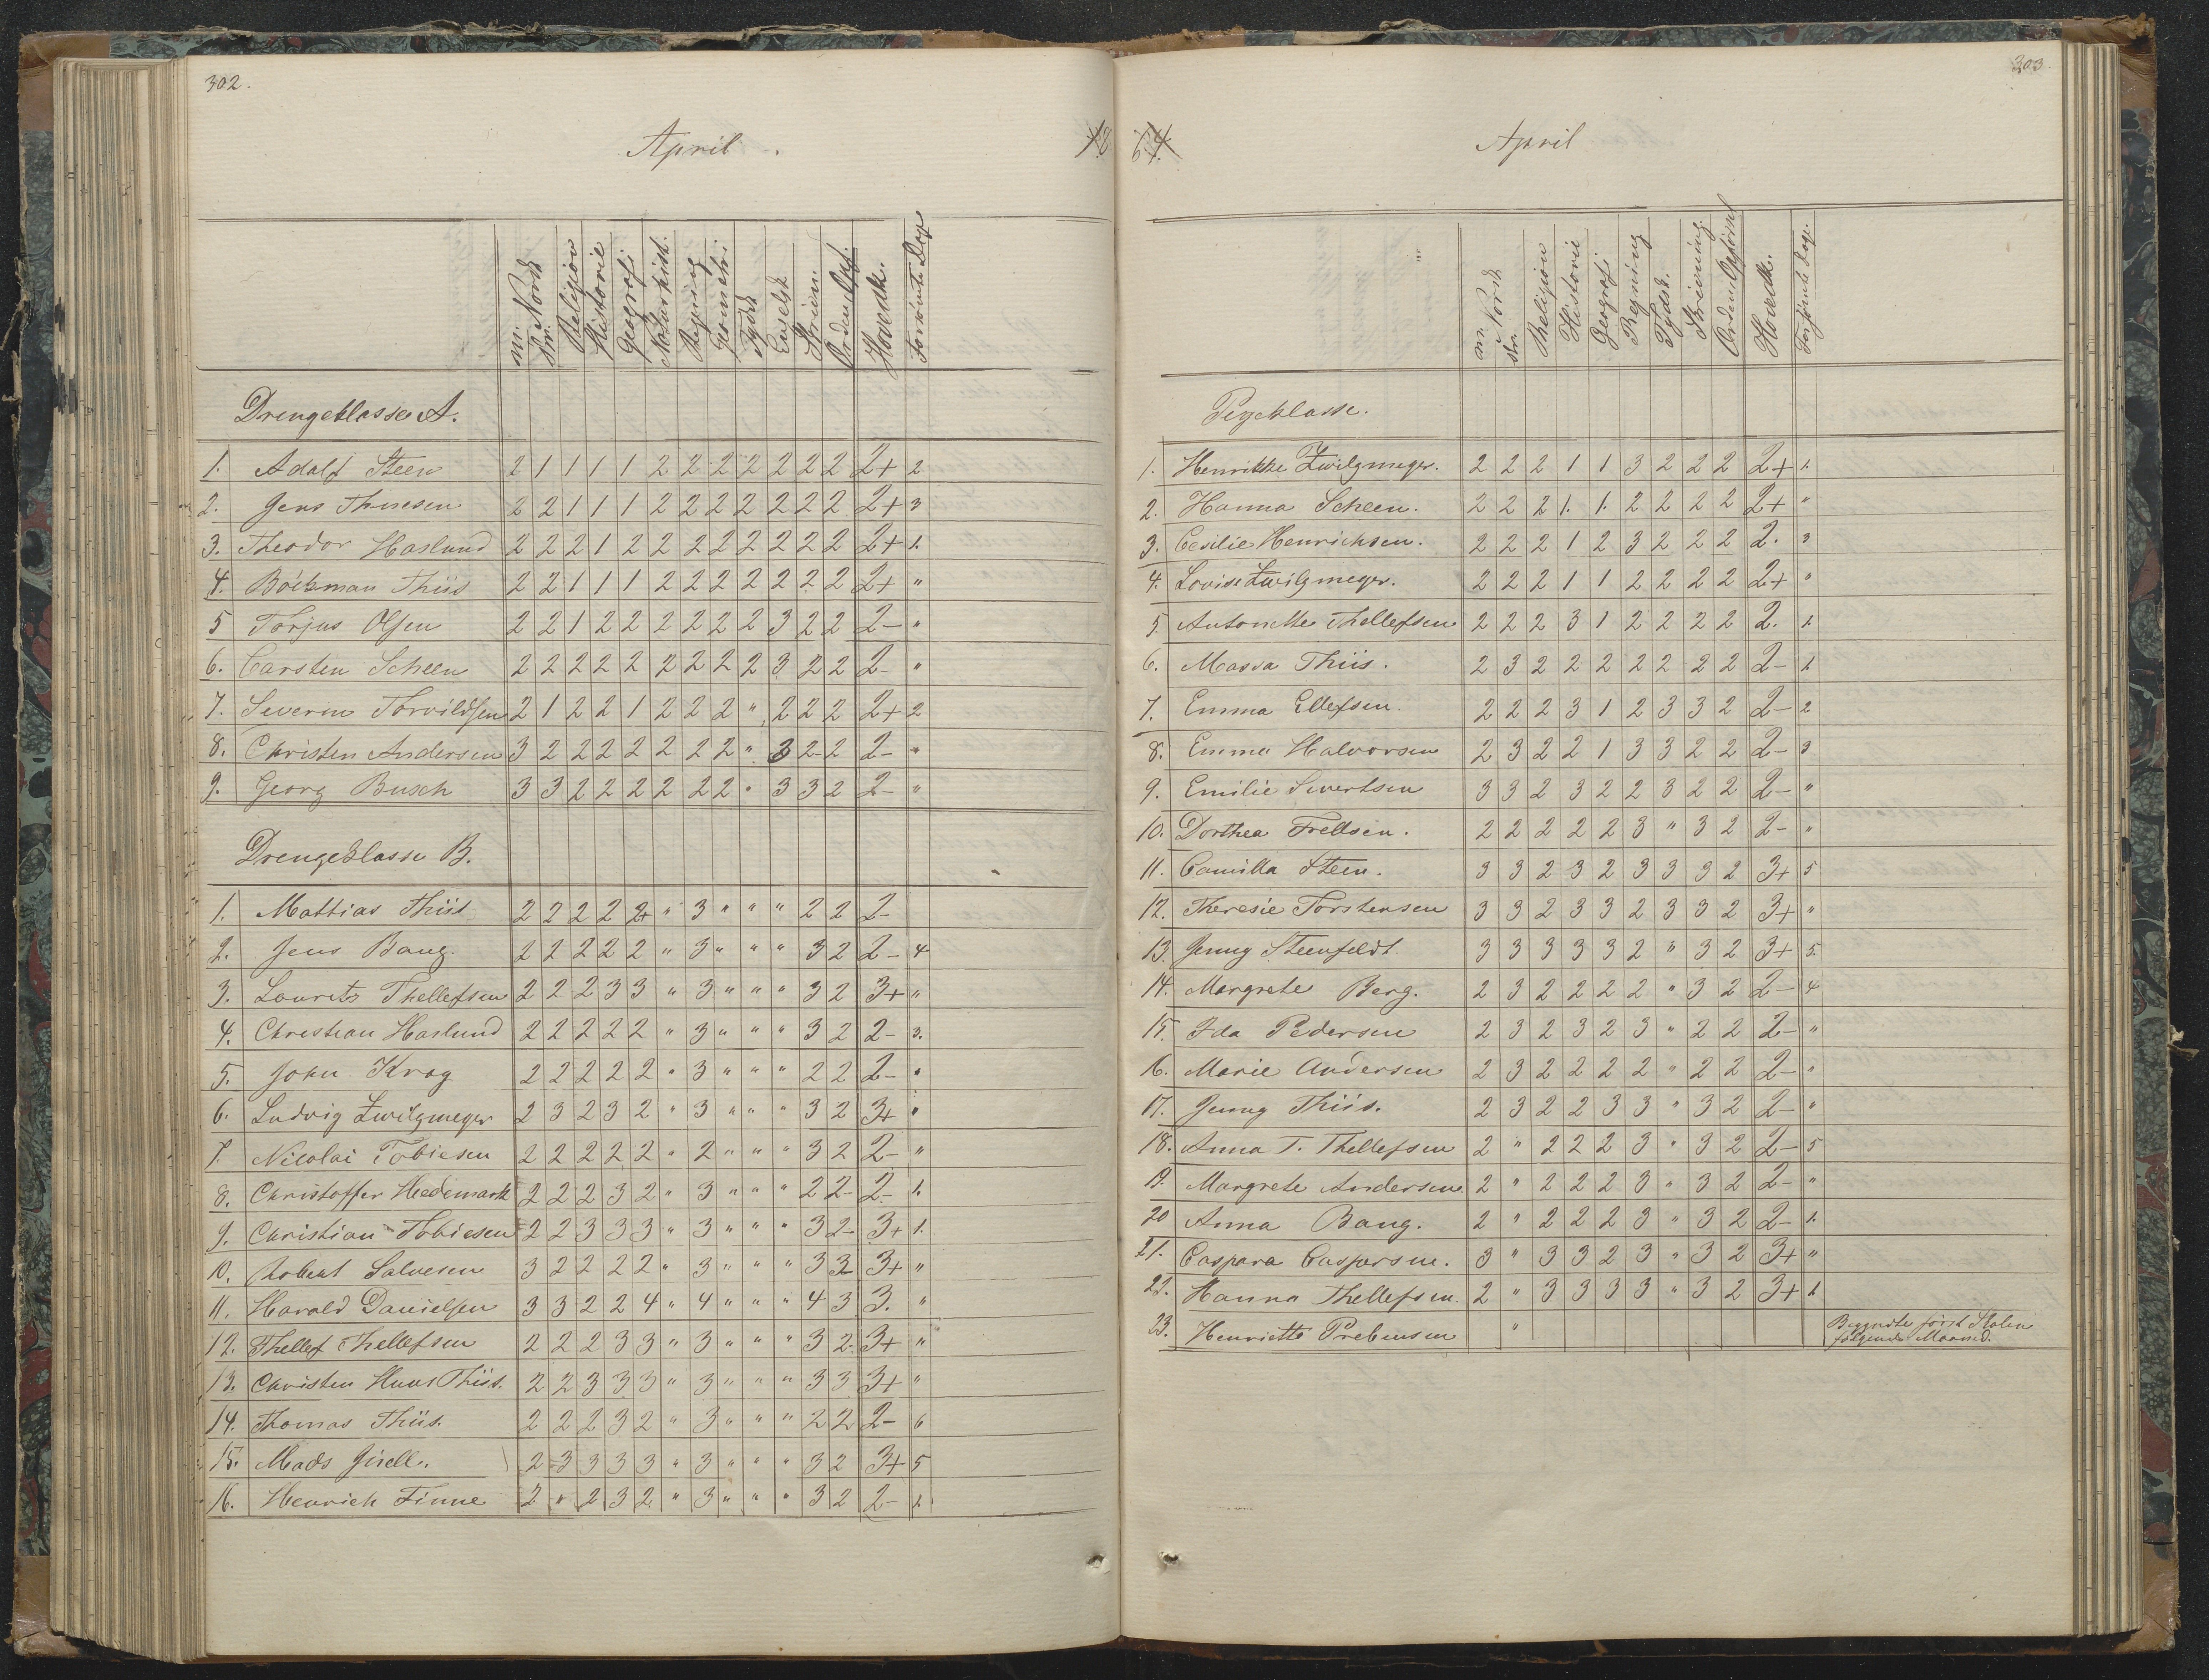 302.
April.
18
mr. Norsk
skr.
Religion
Historie
Geografi
Naturhist.
Regning
Geometri
Tydsk
Engelsk
Skrivn.
Orden Opf.
Hovedk.
Forsömte Dage
Drengeklasse A.
1. Adolf Steen 2 1 1 1 1 2 2 2 2 2 2 2 2+ 2
2. Jens Thuesen 2 2 1 1 1 2 2 2 2 2 2 2 2+ 3
3. Theodor Haslund 2 2 2 1 2 2 2 2 2 2 2 2 2+ 1.
4. Böckman Thiis 2 2 1 1 1 2 2 2 2 2 2 2 2+ "
5 Torjus Olsen 2 2 1 2 2 2 2 2 2 3 2 2 2- "
6. Carsten Scheen 2 2 2 2 2 2 2 2 2 3 2 2 2- "
7. Severin Torvildsen 2 1 2 2 1 2 2 2 " 2 2 2 2+ 2
8. Christen Andersen 3 2 2 2 2 2 2 2 " 3 2 2 2- "
9. Georg Busch 3 3 2 2 2 2 2 2 " 3 3 2 2- "
Drengeklasse B.
1. Mathias Thiis 2 2 2 2 2+ " 3 " " " 2 2 2-
2. Jens Bang. 2 2 2 2 2 " 3 " " " 3 2 2- 4
3. Lauritz Thellefsen 2 2 2 3 3 " 3 " " " 3 2 3+ "
4. Christian Haslund 2 2 2 2 2 " 3 " " " 3 2 2- 3.
5. John Krog 2 2 2 2 2 " 3 " " " 2 2 2- "
6. Ludvig Zwilgmeyer 2 3 2 3 2 " 3 " " " 3 2 3+ "
7. Nicolai Tobiesen 2 2 2 2 2 " 2 " " " 3 2 2- "
8. Christoffer Hedemark 2 2 2 3 2 " 3 " " " 2 2 2- 1.
9. Christian Tobiesen 2 2 3 3 3 " 3 " " " 3 2 3+ 1.
10. Robert Salvesen 3 2 2 2 2 " 3 " " " 3 2 3+ "
11. Harald Danielsen 3 3 2 2 4 " 4 " " " 4 3 3. "
12. Thellef Thellefsen 2 2 2 3 3 " 3 " " " 3 2 3+ "
13. Christen Huus Thiis. 2 2 3 3 3 " 3 " " " 3 3 3+ "
14. Thomas Thiis. 2 2 2 3 2 " 3 " " " 2 2 2- 6
15. Mads Gjsell. 2 3 3 3 3 " 3 " " " 3 2 3+ 5
16. Henrich Finne 2 " 2 3 2 " 3 " " " 3 2 2- 1.
303.
64.
April
m. Norsk
skr.
Religion
Historie
Geografi
Regning
Tydsk.
Skrivning
Orden Opførsel
Hovedk.
Forsømte Dage.
Pigeklasse.
1. Henrikke Zwilgmeyer. 2 2 2 1 1 3 2 2 2 2+ 1.
2. Hanna Scheen. 2 2 2 1. 1. 2 2 2 2 2+ "
3. Cesilie Henrichsen. 2 2 2 1 2 3 2 2 2 2. 3
4. Lovise Zwilgmeyer. 2 2 2 1 1 2 2 2 2 2+ "
5. Antonette Thellefsen 2 2 2 3 1 2 2 2 2 2. 1.
6. Massa Thiis. 2 3 2 2 2 2 2 2 2 2- 1
7. Emma Ellefsen. 2 2 2 3 1 2 3 3 2 2- 2
8. Emma Halvorsen 2 3 2 2 1 3 3 2 2 2- 3
9. Emilie Sivertsen 3 3 2 3 2 2 3 2 2 2- "
10. Dorthea Trellsen. 2 2 2 2 2 3 " 3 2 2- "
11. Camilla Steen. 3 3 2 3 2 3 3 3 2 3+ 5
12. Theresie Torstensen 3 3 2 3 3 2 3 3 2 3+ "
13. Jenny Steenfeldt. 3 3 3 3 3 2 " 3 2 3+ 5.
14. Margrete Berg. 2 3 2 2 2 2 " 3 2 2- 4
15. Ida Pedersen 2 3 2 3 2 3 " 2 2 2- "
16. Marie Andersen 2 3 2 2 2 2 " 2 2 2- "
17. Jenny Thiis. 2 3 2 2 3 3 " 3 2 2- "
18. Anna T. Thellefsen 2 " 2 2 2 3 " 3 2 2- 5
19. Margrete Andersen. 2 " 2 2 2 3 " 3 2 2- "
20 Anna Bang. 2 " 2 2 2 3 " 3 2 2- 1.
21. Caspara Caspersen. 3 " 3 3 2 3 " 3 2 3+ "
22. Hanna Thellefsen. 2 " 3 3 3 3 " 3 2 3+ 1
23. Henriette Prebensen " Begyndte först Skolen
følgende Maaned.